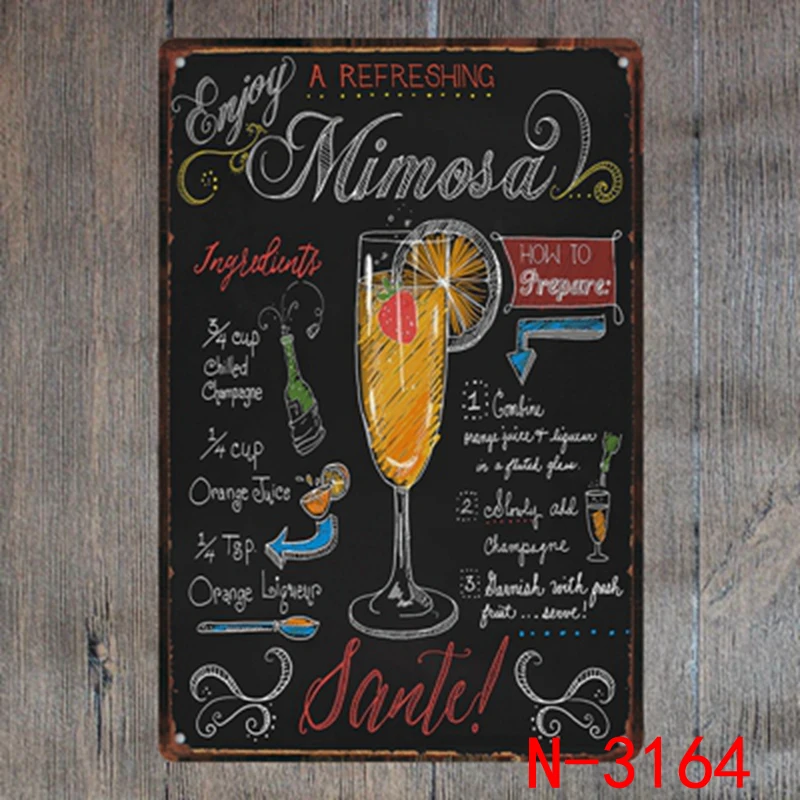 Enjoy
A REFRESHING
Mimosa
Ingredients
3/4 cup
Chilled
Champagne
1/4 cup
Orange Juice
1/4 Tsp.
Orange Liqueur
HOW TO
Prepare:
1 Combine
orange juice + liqueur
in a fluted glass.
2 Slowly add
Champagne
3 Garnish with fresh
fruit ... serve!
Sante!
N-3164